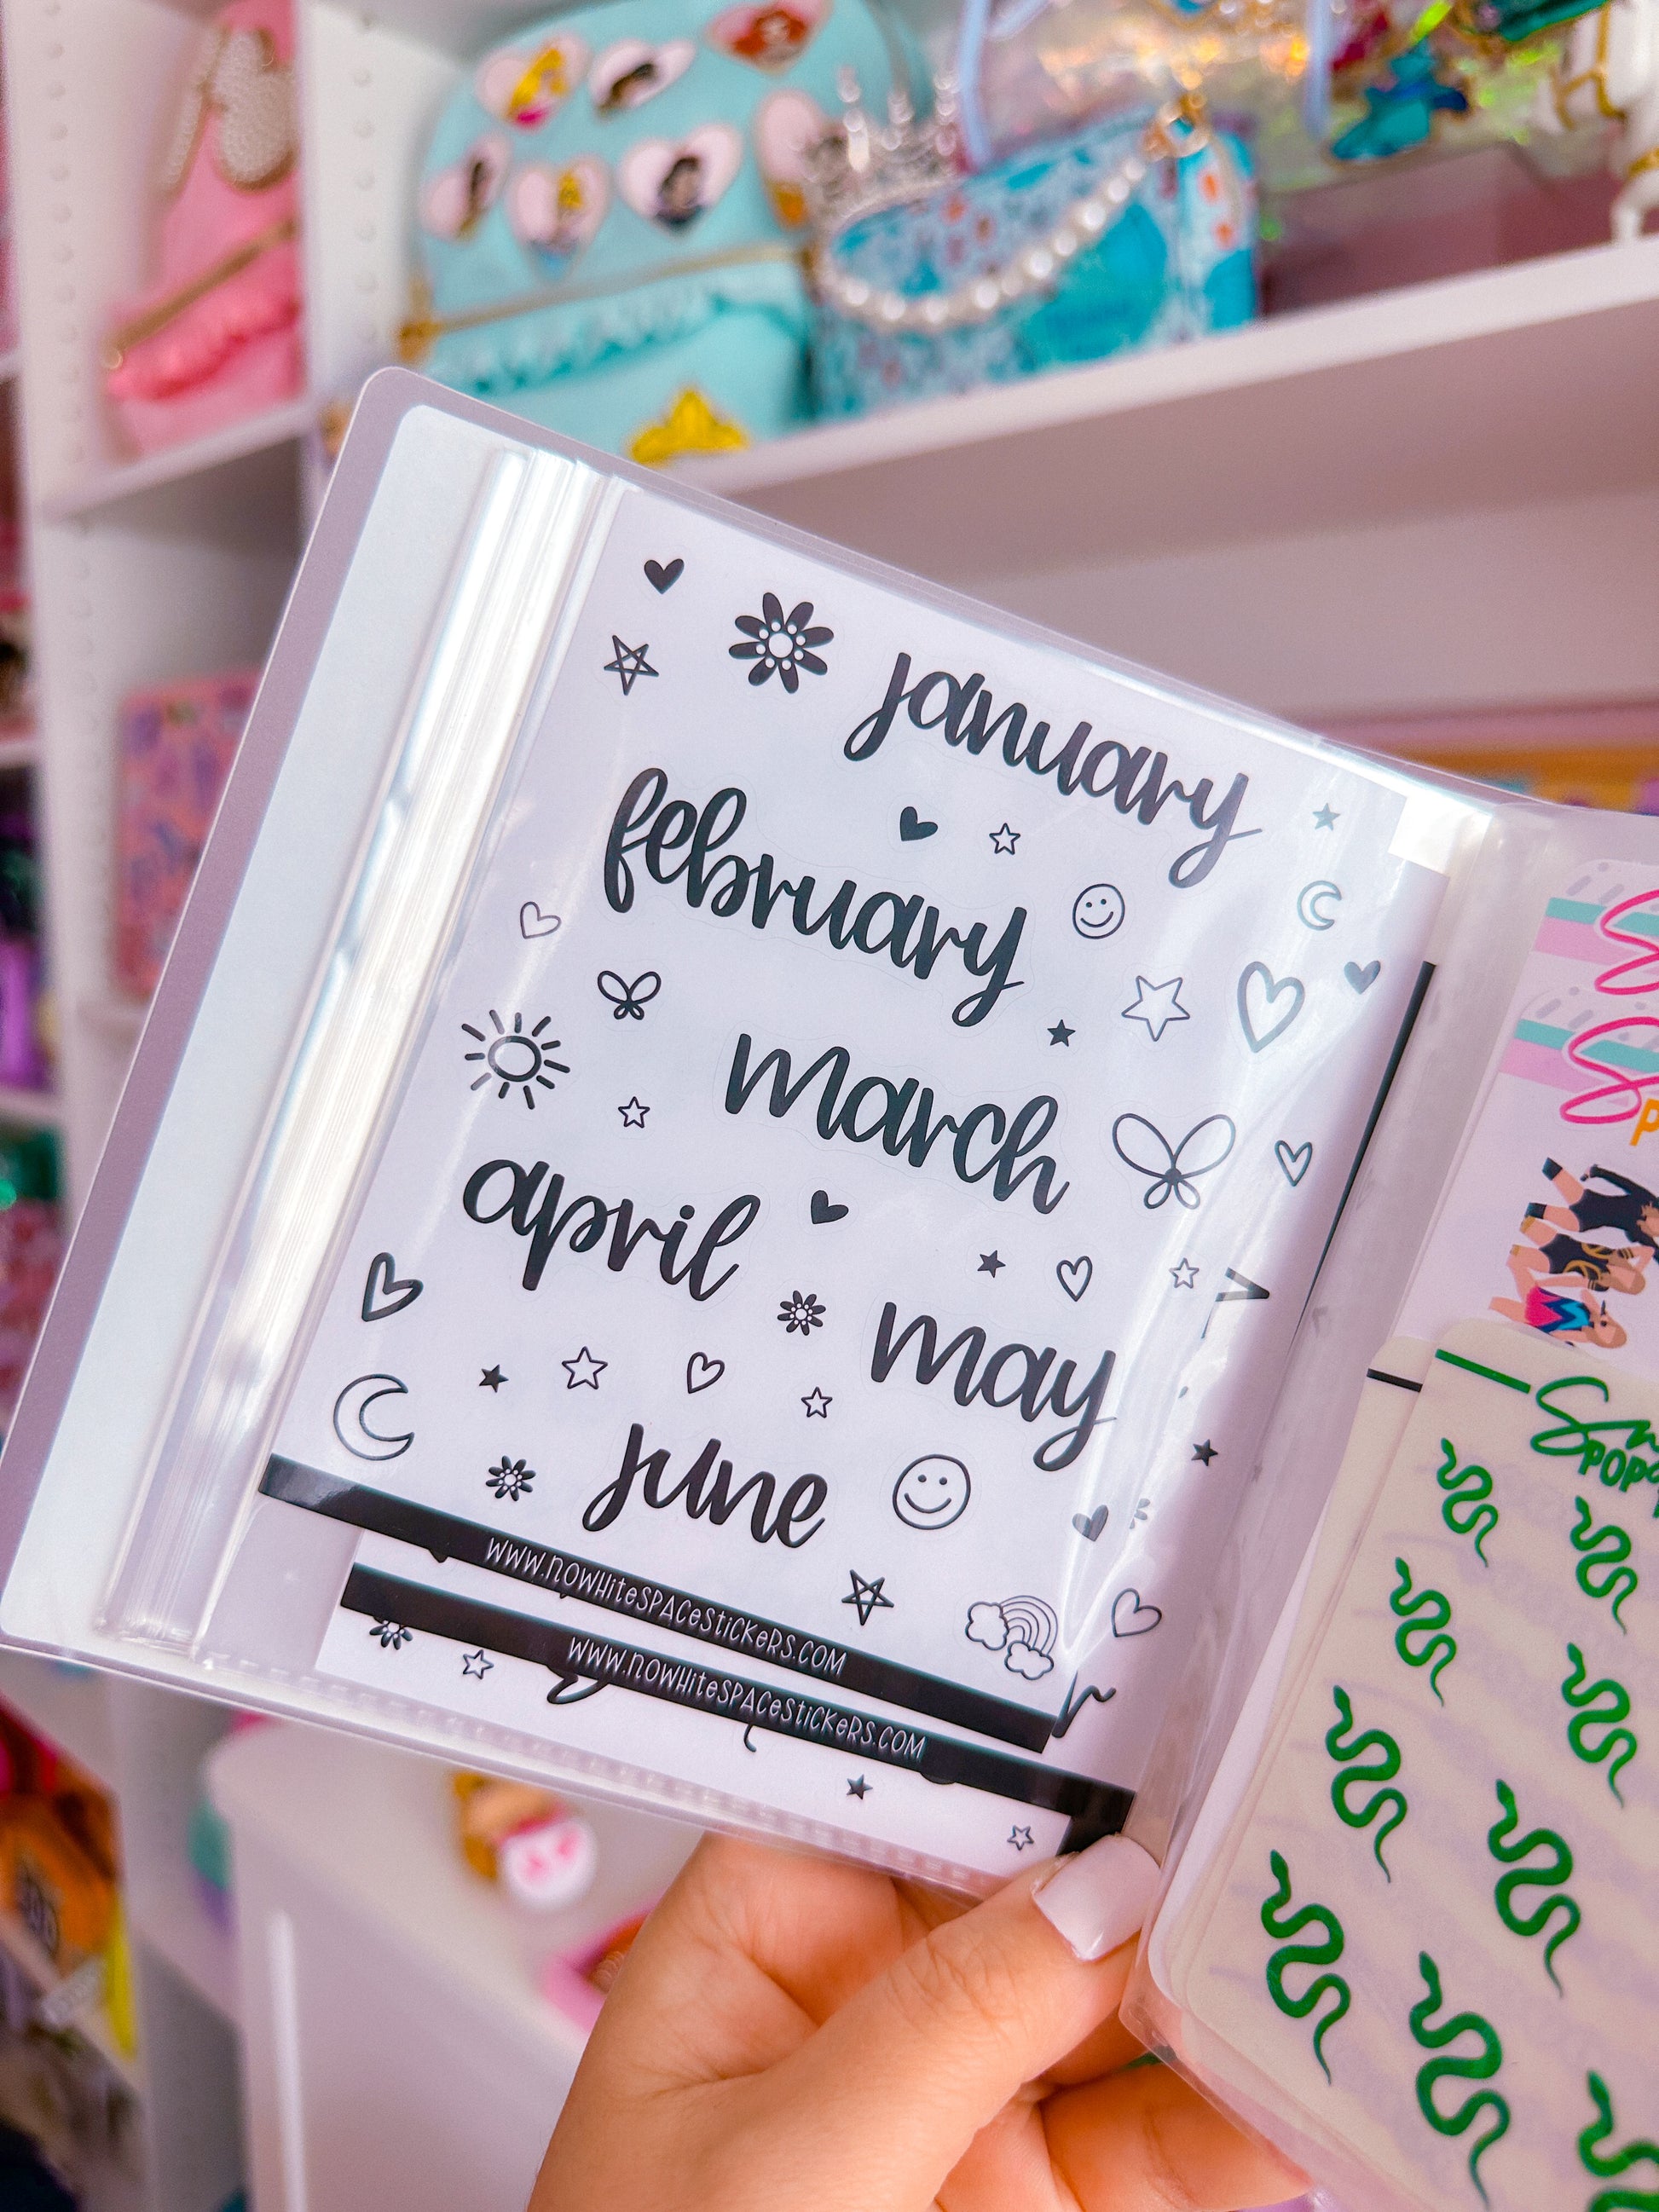 january
february
march
april
may
june
www.nowhitespacestickers.com
www.nowhitespacestickers.com